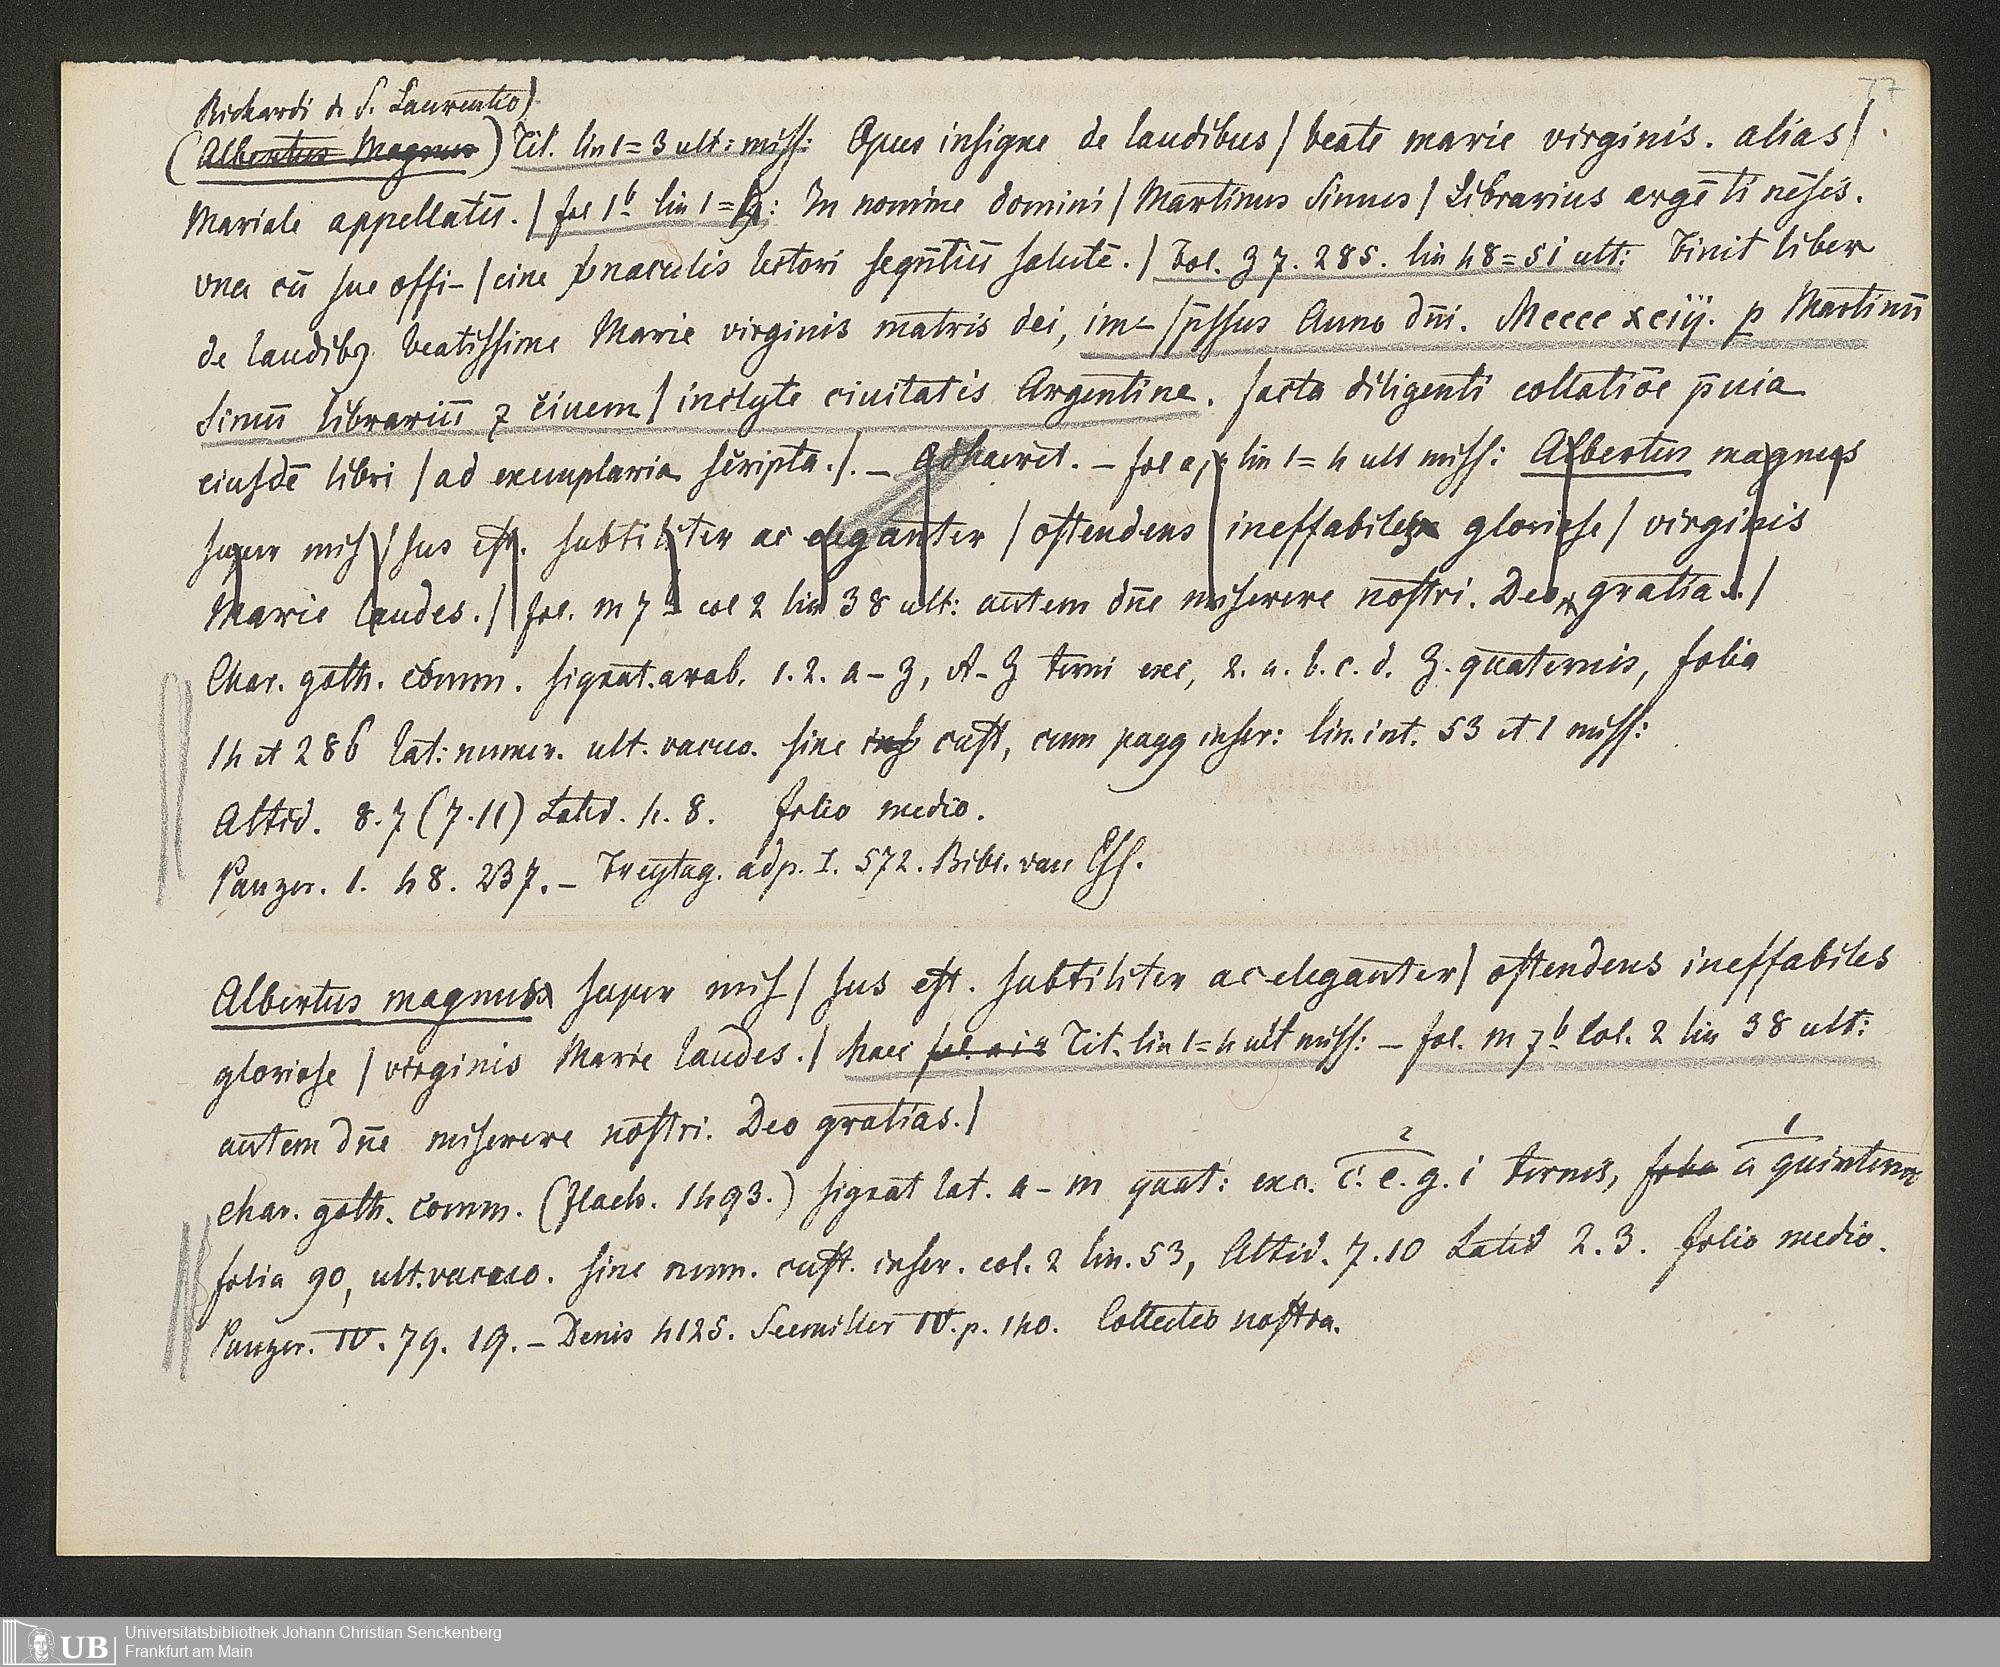 77
Richardi de S. Laurentio)
(Albertus Magnus) Tit. lin 1=3 ult: miss: Opus insigne de laudibus / beate marie virginis. alias /
Mariale appellatū. / fol 1b lin 1= : In nomine domini / Martinus Simus / Librarius argētinēsis.
vna cū sue offi- / cine lectori sequētiū salutē. / Fol. Z 7. 285. lin 48=51 ult: Finit liber
de laudibꝫ beatissime Marie virginis matris dei, im- / p̄ssus Anno dn̄i. Mcccc xciij. p Martinū
Simū librariū ⁊ ciuem / inclyte ciuitatis Argentine. facta diligenti collatiōe p̄uia
eiusdē libri / ad exemplaria scripta. /. – adhaeret. – fol a lin 1=4 ult miss: Albertus magnus
super mis / sus est. subtiliter ac eleganter / ostendens ineffabiles gloriose / virginis
Marie laudes. / fol. m 7 b col 2 lin 38 ult: autem dn̄e miserere nostri. Deo gratia. /
Char. goth. comm. signat. arab. 1. 2. a–z, A–Z terni exc, 2. a. b. c. d. Z. quaternis, folia
14 et 286 lat: numer. ult. vacuo. sine cust, cum pagg inser: lin. int. 53 et 1 miss:
Altid. 8.7 (7.11) Latid. 4. 8. folio medio.
Panzer. 1. 48. 237. – Freytag. adp. I. 572. Bibl. van Ess.
Albertus magnus super mis / sus est. subtiliter ac eleganter / ostendens ineffabiles
gloriose / virginis Marie laudes. / haec fol. a 1 a Tit. lin 1=4 ult miss: – fol. m 7 b Col. 2 lin 38 ult:
autem dn̄e miserere nostri. Deo gratias. /
char. goth. comm. (Flach. 1493.) signat lat. a–m quat: exc. c. e. g. i ternis, folia a quinterno
2 1
folia 90, ult. vacuo. sine num. cust. inser. col. 2 lin. 53, Altid. 7.10 Latid 2.3. folio medio.
Panzer. IV. 79. 19. – Denis 4125. Seemiller IV. p. 140. Collectio nostra.
UB
Universitätsbibliothek Johann Christian Senckenberg
Frankfurt am Main